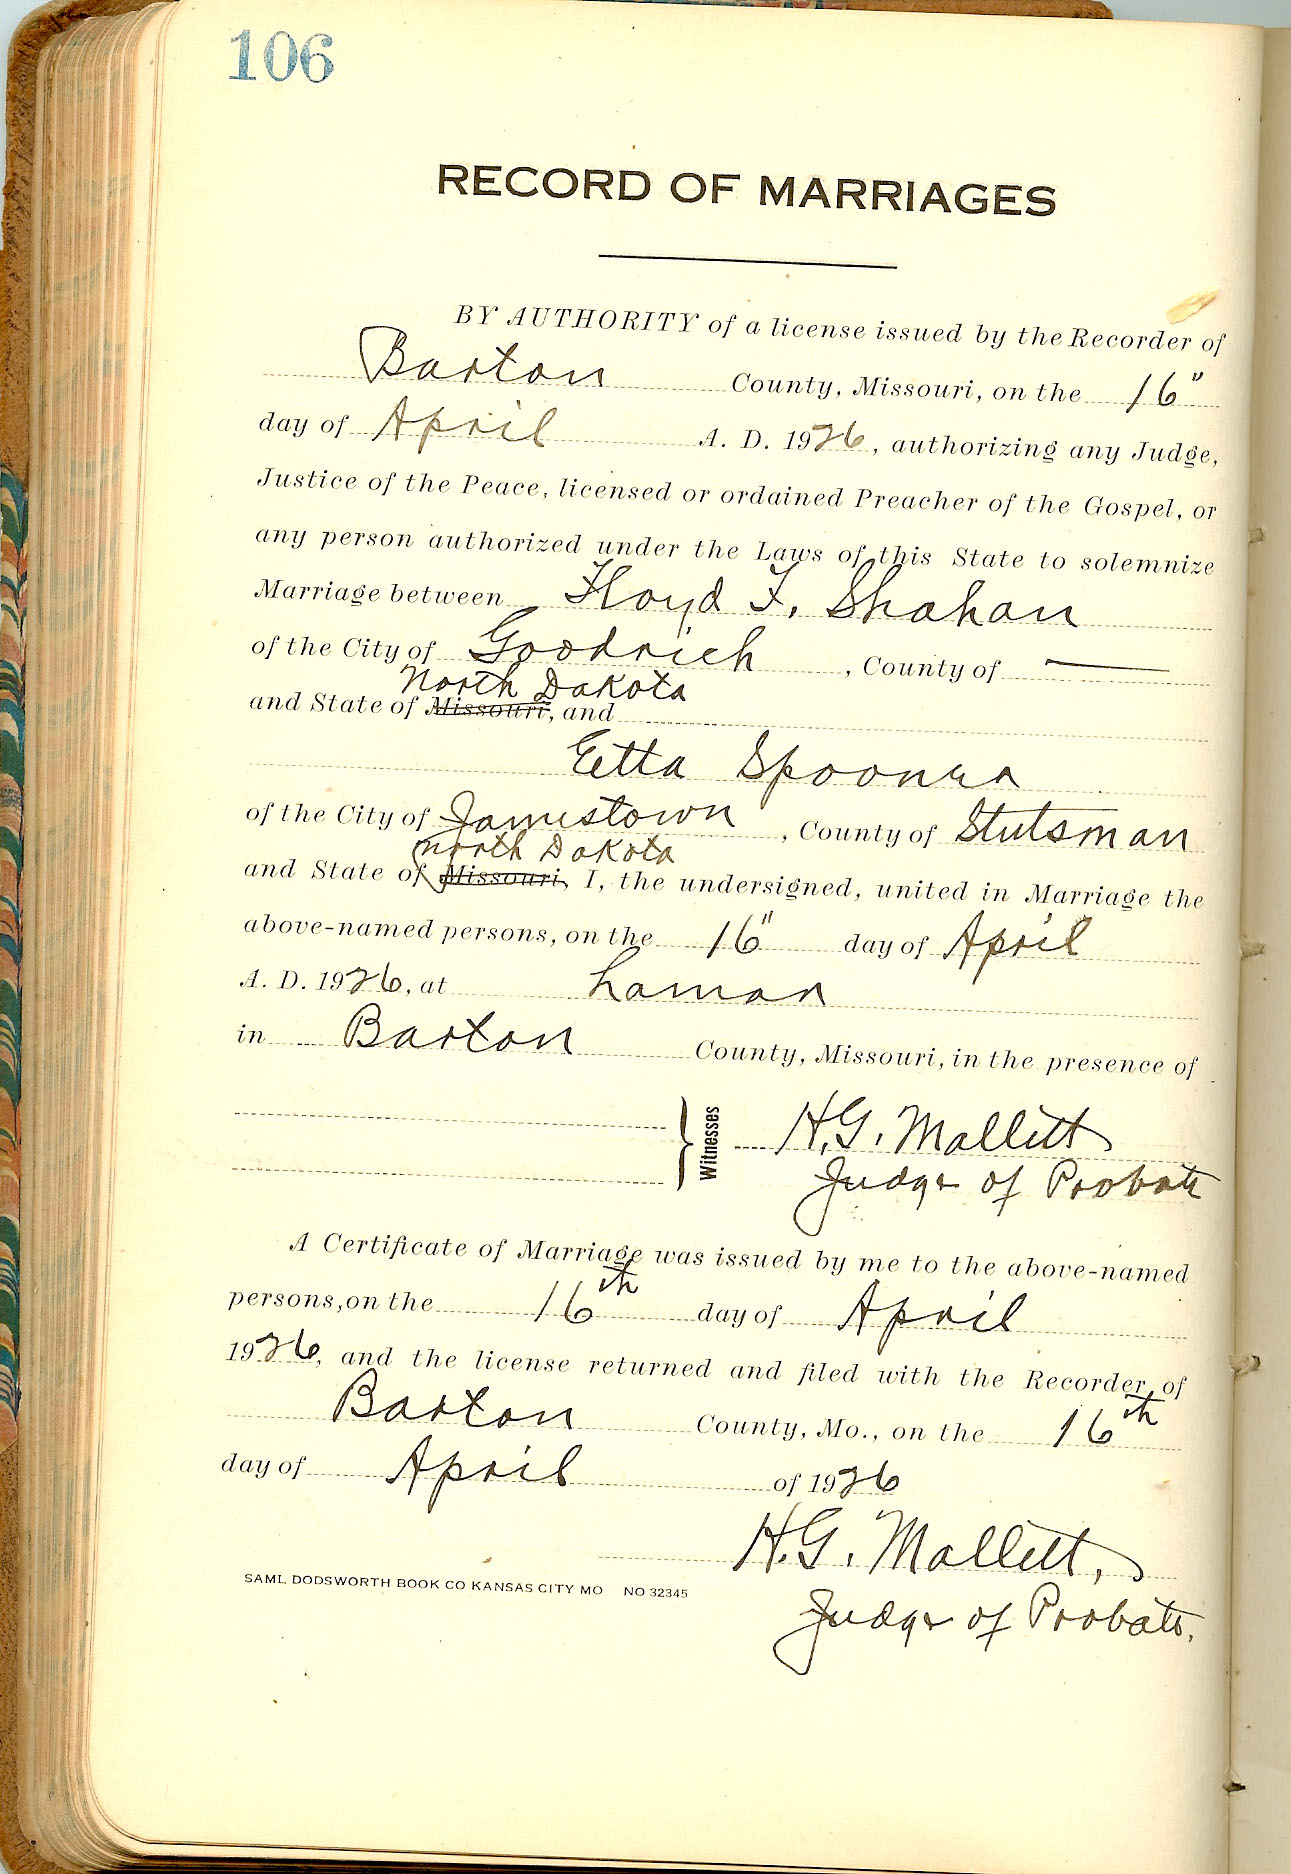 106
RECORD OF MARRIAGES
BY AUTHORITY of a license issued by the Recorder of
Barton County, Missouri, on the 16"
day of April A. D. 1926, authorizing any Judge,
Justice of the Peace, licensed or ordained Preacher of the Gospel, or
any person authorized under the Laws of this State to solemnize
Marriage between Floyd F. Shahan
of the City of Goodrich, County of —
North Dakota
and State of Missouri, and
Etta Spooner
of the City of Jamestown, County of Stutsman
North Dakota
and State of Missouri, I, the undersigned, united in Marriage the
above-named persons, on the 16" day of April
A. D. 1926, at Lamar
in Barton County, Missouri, in the presence of
Witnesses H. G. Mallett
Judge of Probate
A Certificate of Marriage was issued by me to the above-named
persons, on the 16th day of April
1926, and the license returned and filed with the Recorder of
Barton County, Mo., on the 16th
day of April of 1926
H. G. Mallett,
Judge of Probate.
SAML DODSWORTH BOOK CO KANSAS CITY MO NO 32345